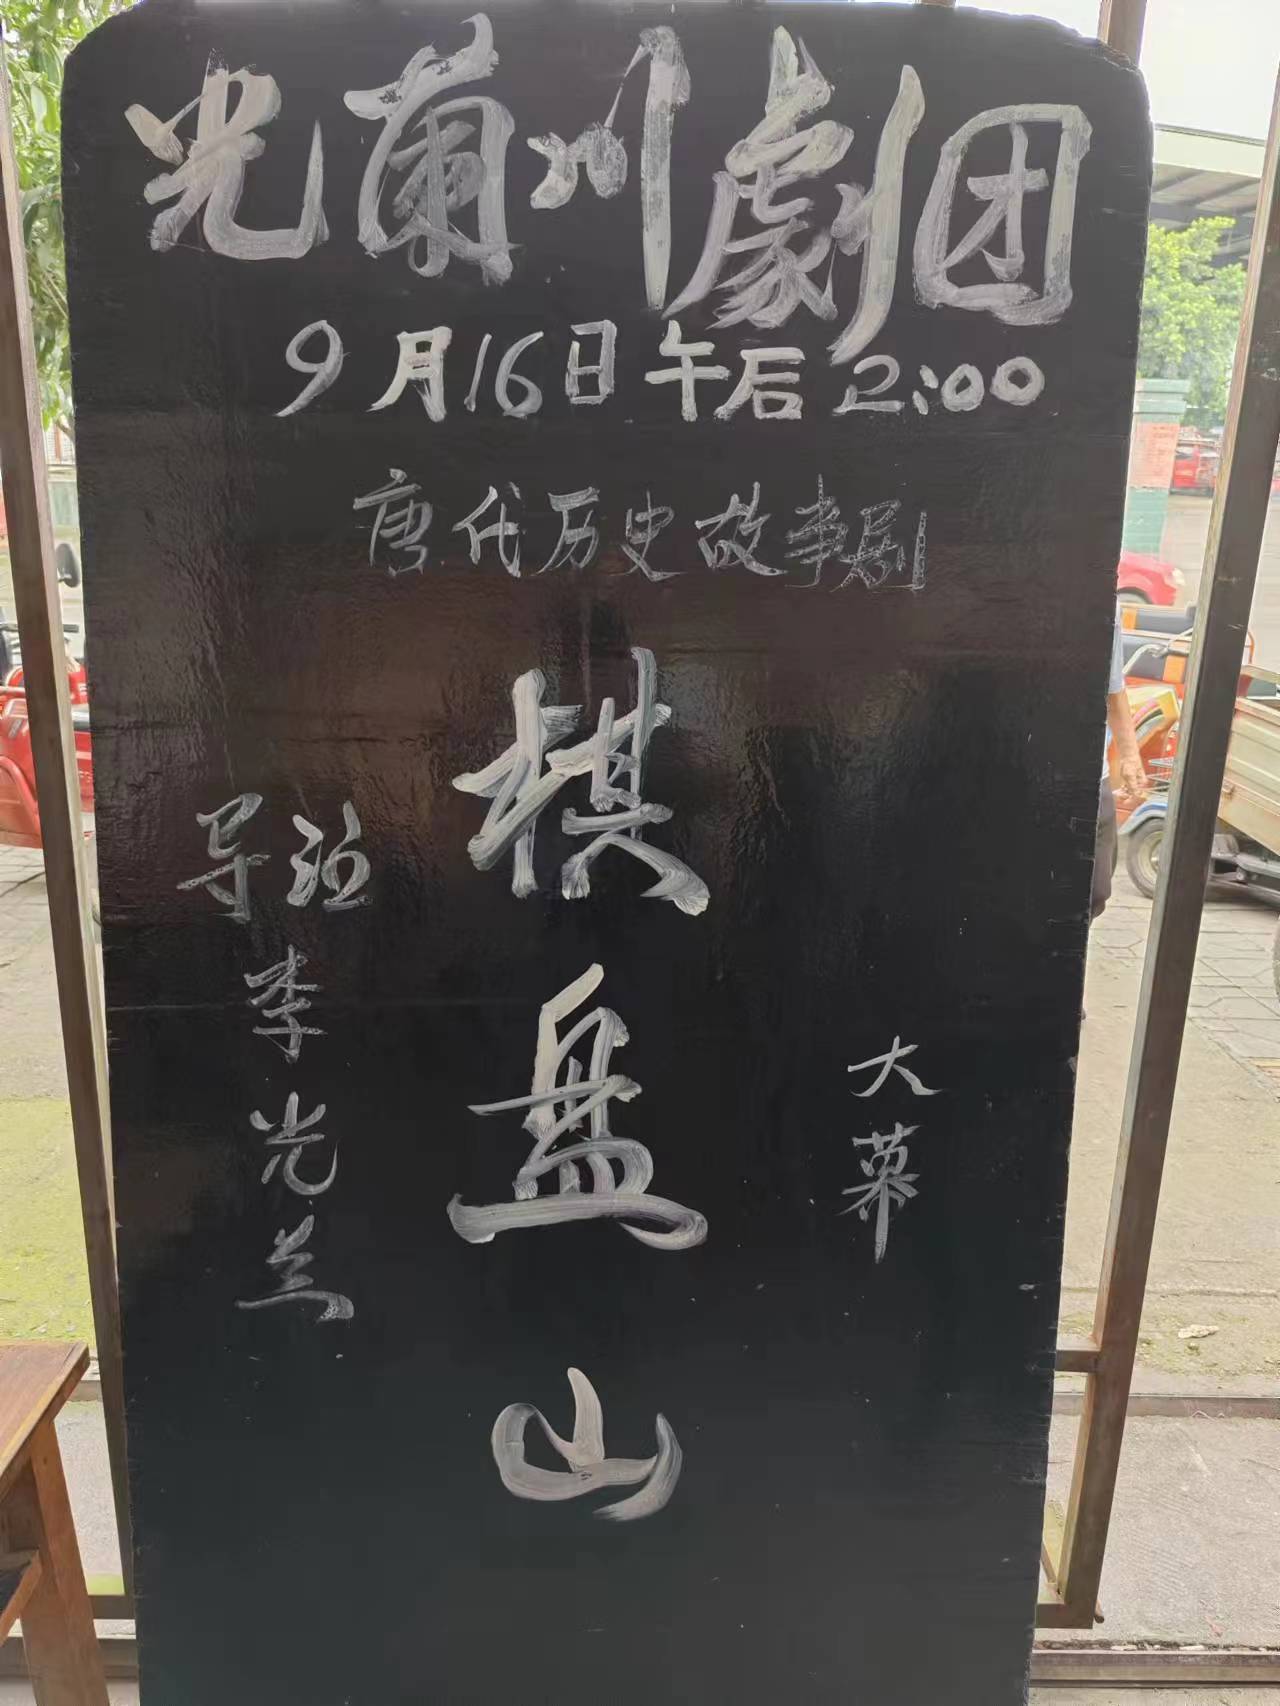 光蘭川劇团
9月16日午后2:00
唐代历史故事剧
棋盘山
导演
李光兰
大幕